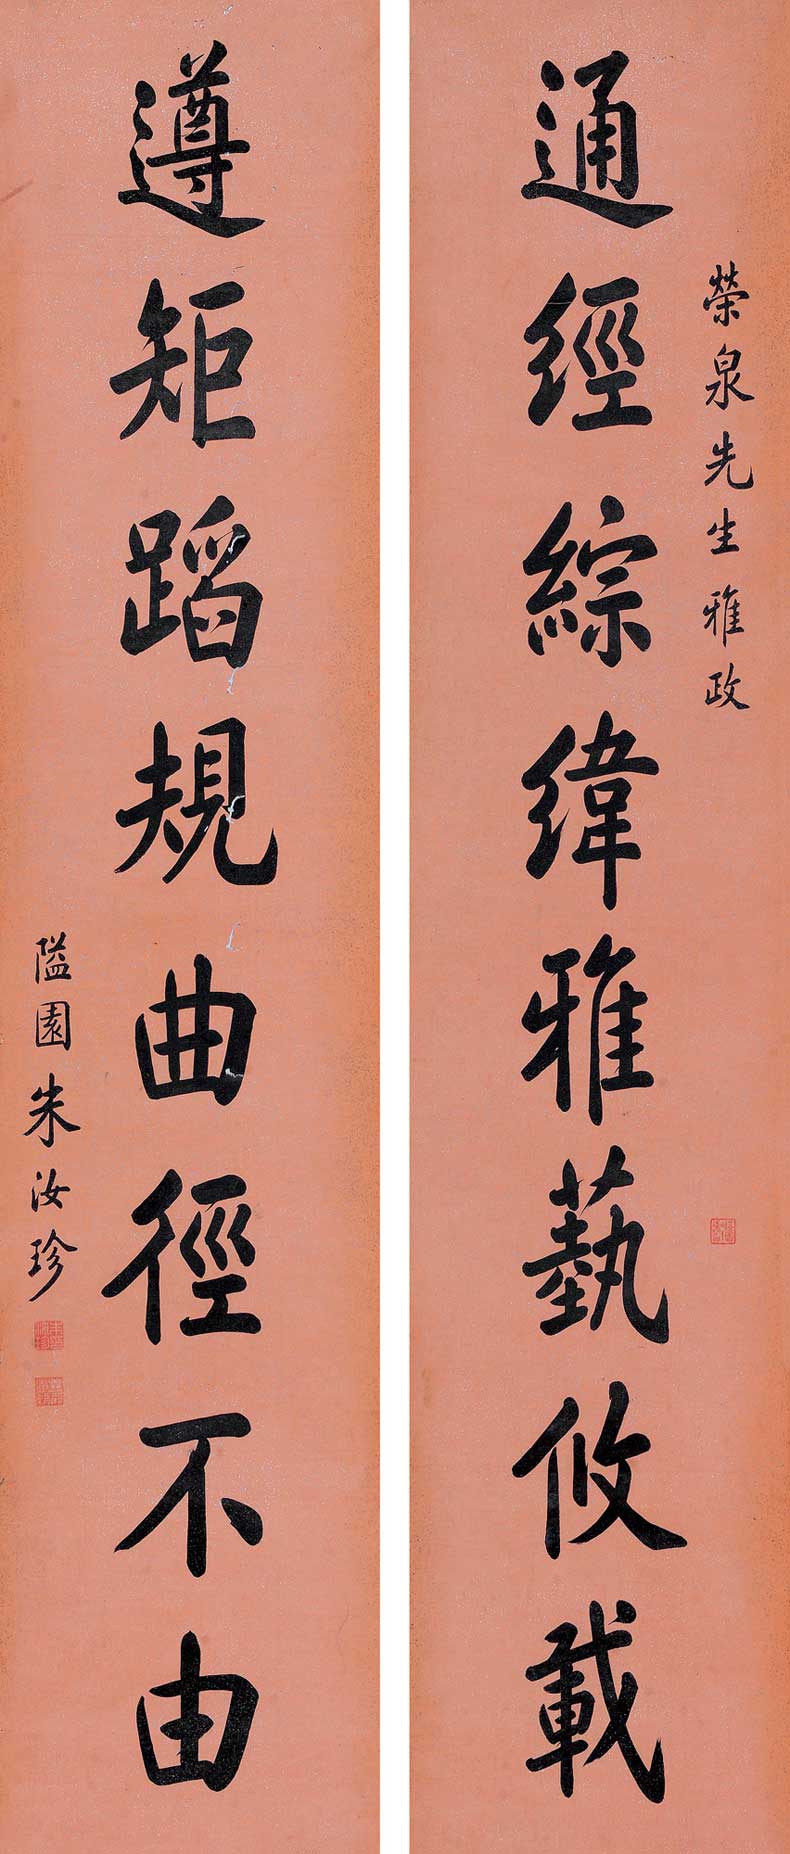 榮泉先生雅政
通經綜緯雅藝攸載
遵矩蹈規曲徑不由
隘園朱汝珍